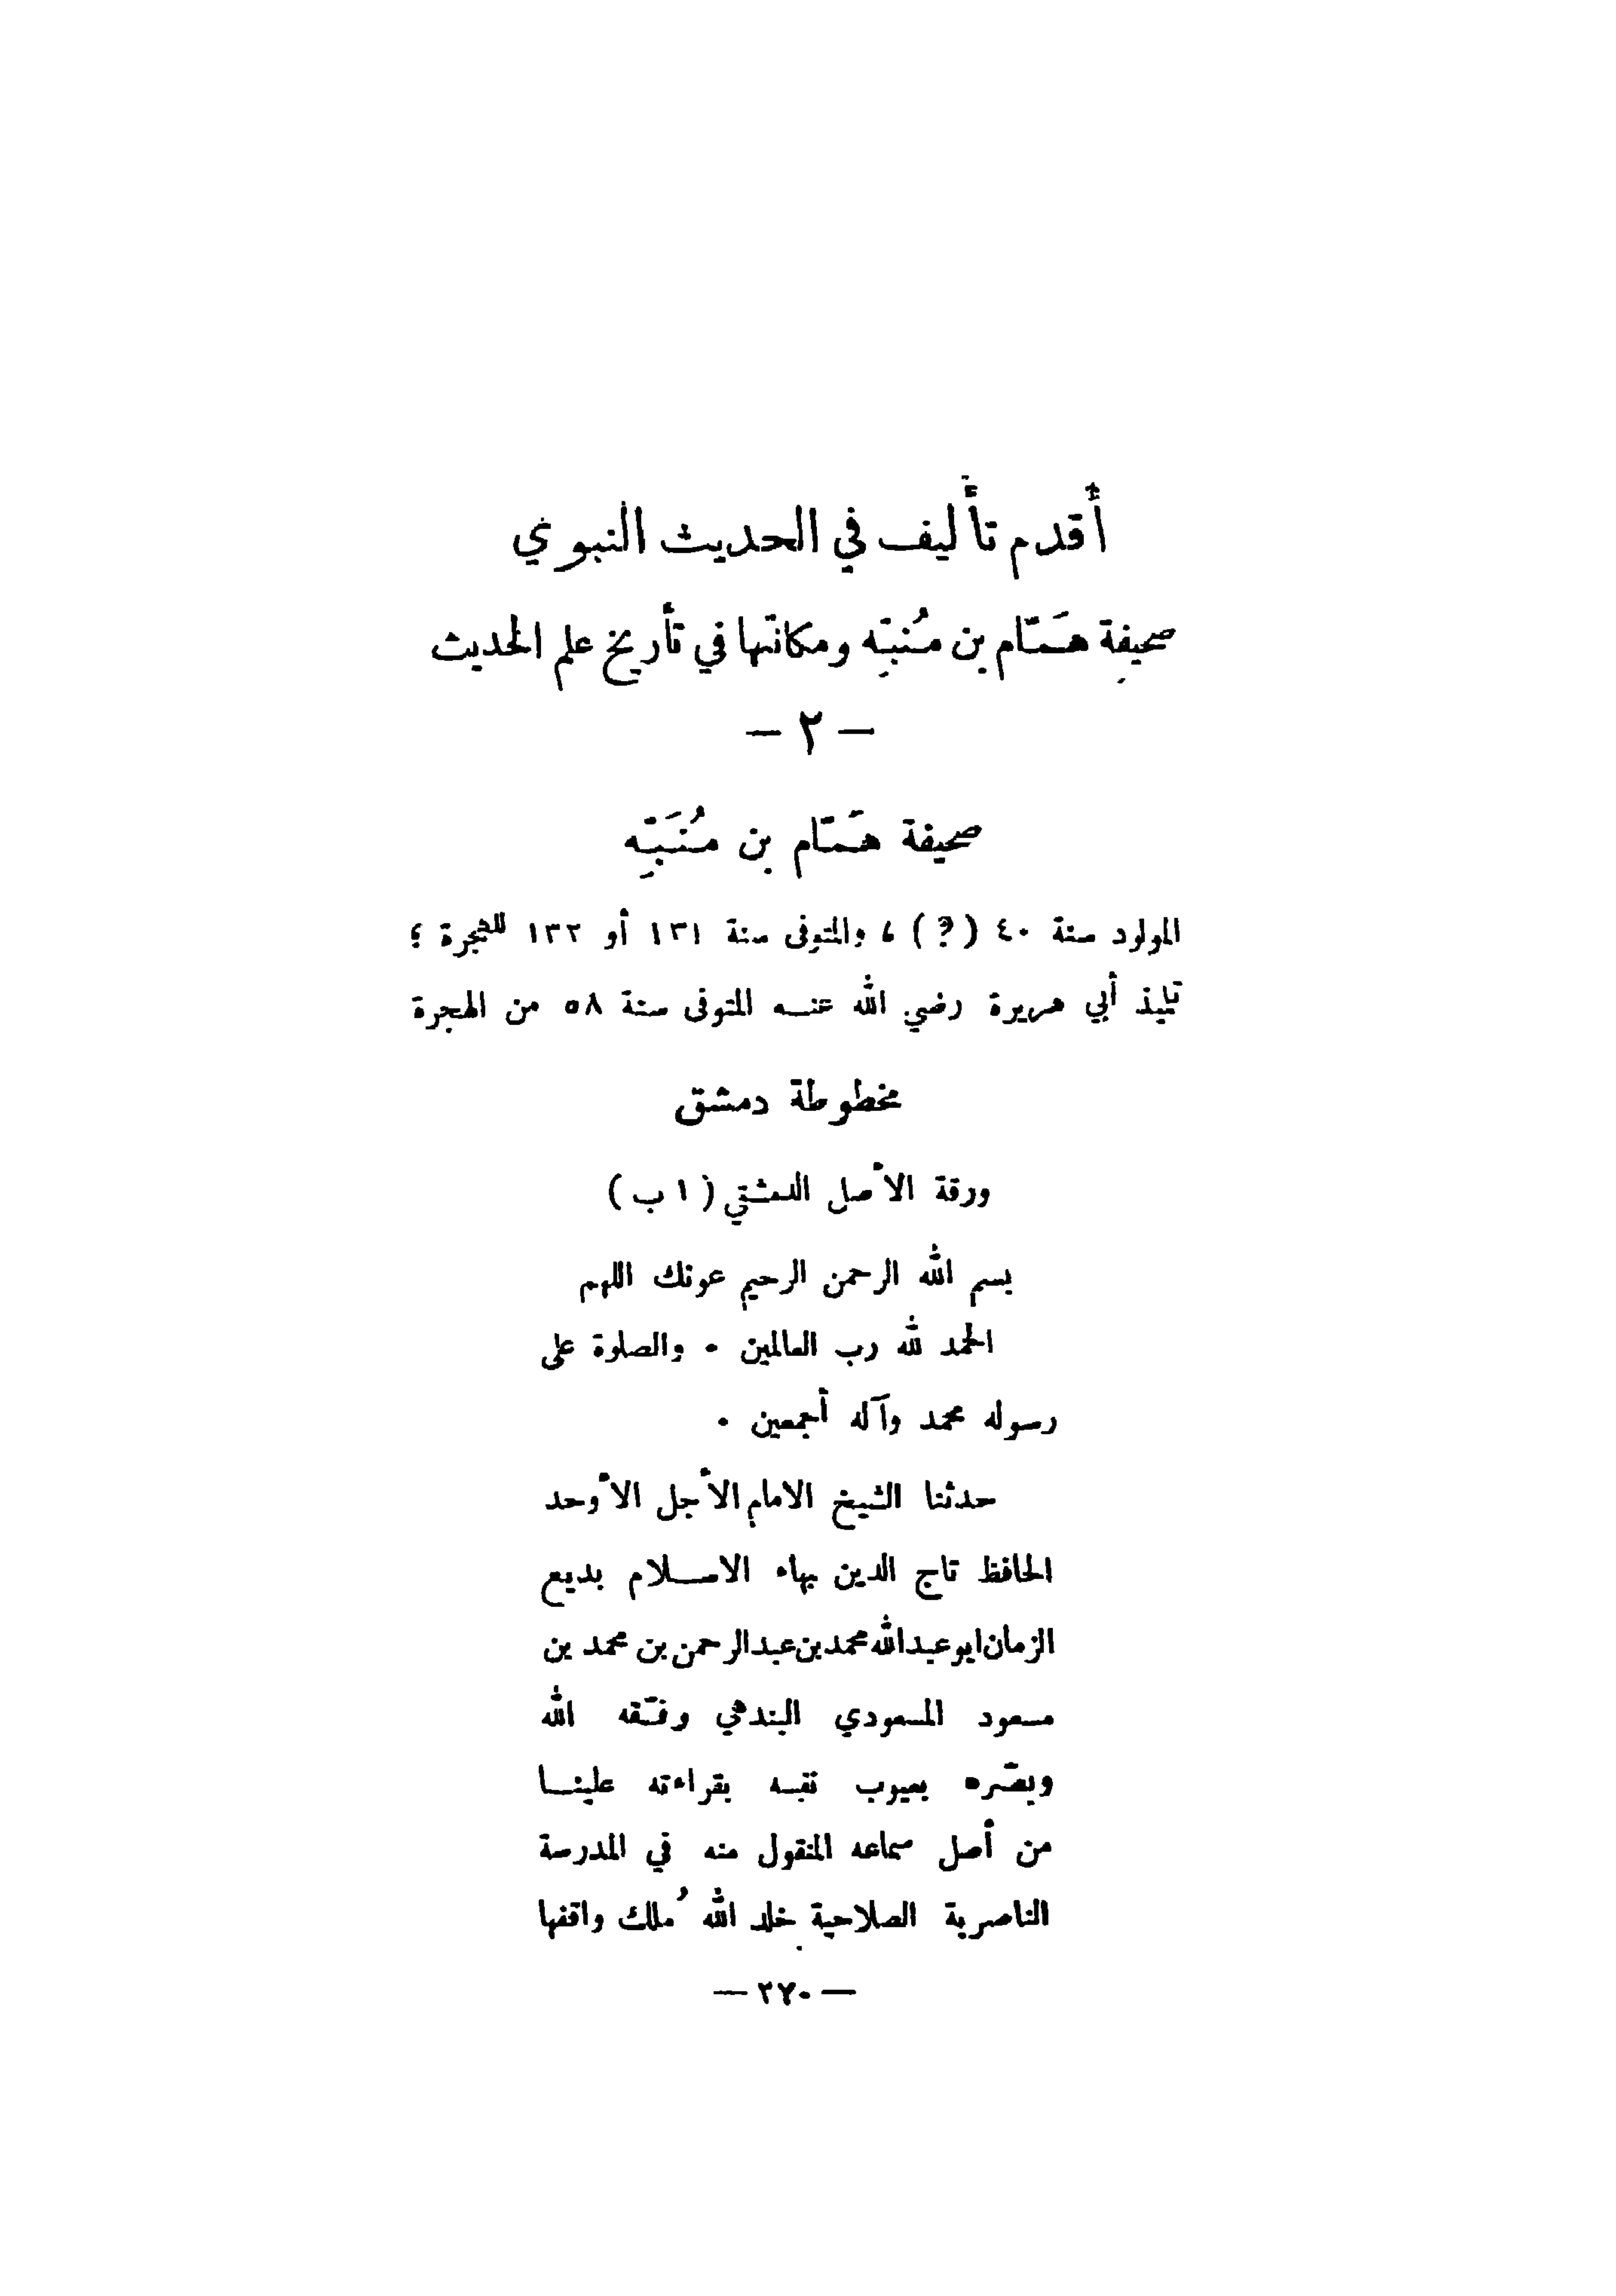 أَقدم تأليف في الحديث النبوي
صحيفة هَمّام بن مُنبِّه ومكانتها في تأريخ علم الحديث
— ٢ —
صحيفة هَمّام بن مُنَبِّه
المولود سنة ٤٠ (؟) ، والمتوفى سنة ١٣١ أو ١٣٢ للهجرة ؛
تلميذ أبي هريرة رضي الله عنه المتوفى سنة ٥٨ من الهجرة
مخطوطة دمشق
ورقة الأصل الدمشقي ( ١ ب )
بسم الله الرحمن الرحيم عونك اللهم
الحمد لله رب العالمين . والصلوة على
رسوله محمد وآله أجمعين .
حدثنا الشيخ الامام الأجل الأوحد
الحافظ تاج الدين بهاء الاسلام بديع
الزمان ابو عبد الله محمد بن عبد الرحمن بن محمد بن
مسعود المسعودي البندهي وفّقه الله
وبصّره بعيوب نفسه بقراءته علينا
من أصل سماعه المنقول منه في المدرسة
الناصرية الصلاحية خلد الله مُلك واقفها
— ٢٧٠ —